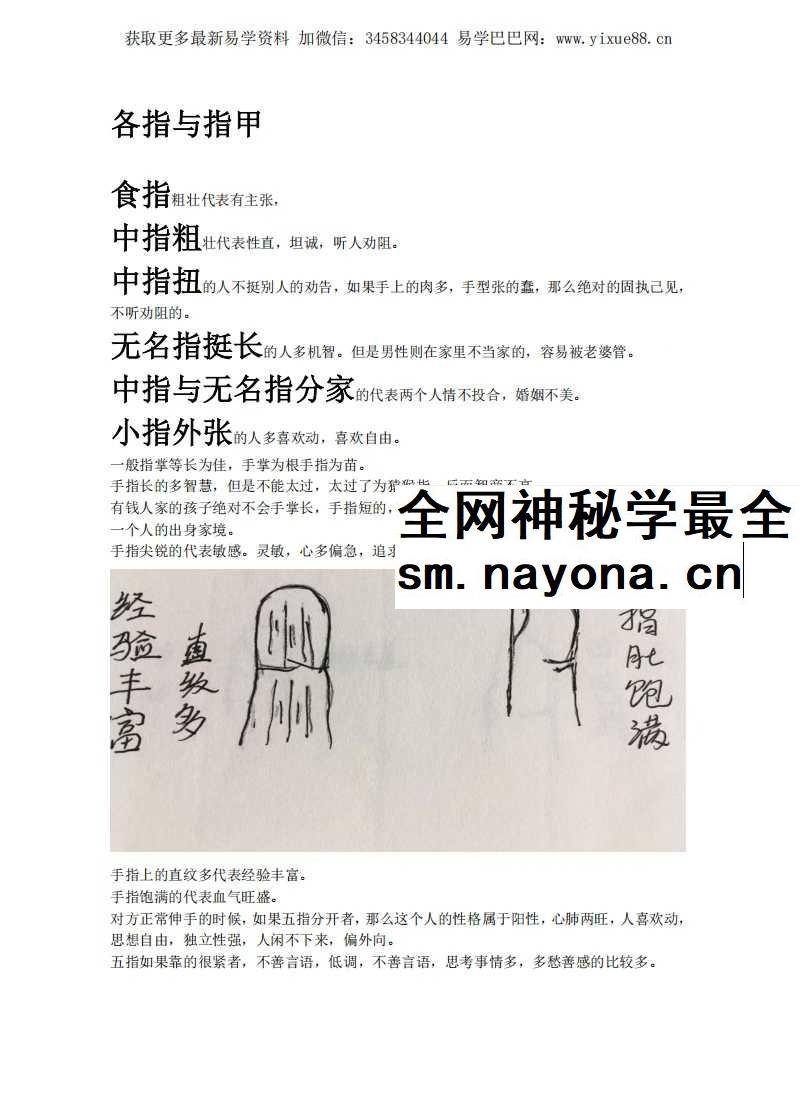 获取更多最新易学资料 加微信：3458344044 易学巴巴网：www.yixue88.cn
各指与指甲
食指粗壮代表有主张，
中指粗壮代表性直，坦诚，听人劝阻。
中指扭的人不挺别人的劝告，如果手上的肉多，手型张的蠢，那么绝对的固执己见，
不听劝阻的。
无名指挺长的人多机智。但是男性则在家里不当家的，容易被老婆管。
中指与无名指分家的代表两个人情不投合，婚姻不美。
小指外张的人多喜欢动，喜欢自由。
一般指掌等长为佳，手掌为根手指为苗。
手指长的多智慧，但是不能太过，太过了为猿猴指，反而智商不高
有钱人家的孩子绝对不会手掌长，手指短的，
一个人的出身家境。
手指尖锐的代表敏感。灵敏，心多偏急，追求
全网神秘学最全
sm.nayona.cn
经验丰富
直纹多
指肚饱满
手指上的直纹多代表经验丰富。
手指饱满的代表血气旺盛。
对方正常伸手的时候，如果五指分开者，那么这个人的性格属于阳性，心肺两旺，人喜欢动，
思想自由，独立性强，人闲不下来，偏外向。
五指如果靠的很紧者，不善言语，低调，不善言语，思考事情多，多愁善感的比较多。